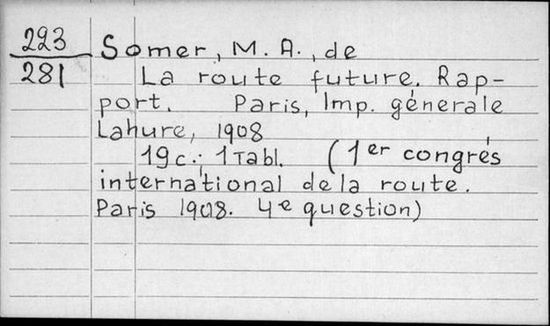 223
281
Somer, M. A., de
La route future. Rap-
port. Paris, Imp. génerale
Lahure, 1908
19 c.; 1 Tabl. (1er congrés
international de la route.
Paris 1908. 4e question)